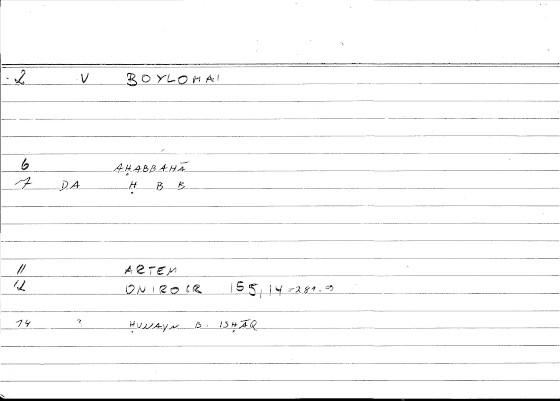 2 V BOYLOMAI
6 AḤABBAHĀ
7 DA Ḥ B B
11 ARTEM
12 ONIROCR 155,14 = 281.9
14 ḤUNAYN B. ISḤĀQ